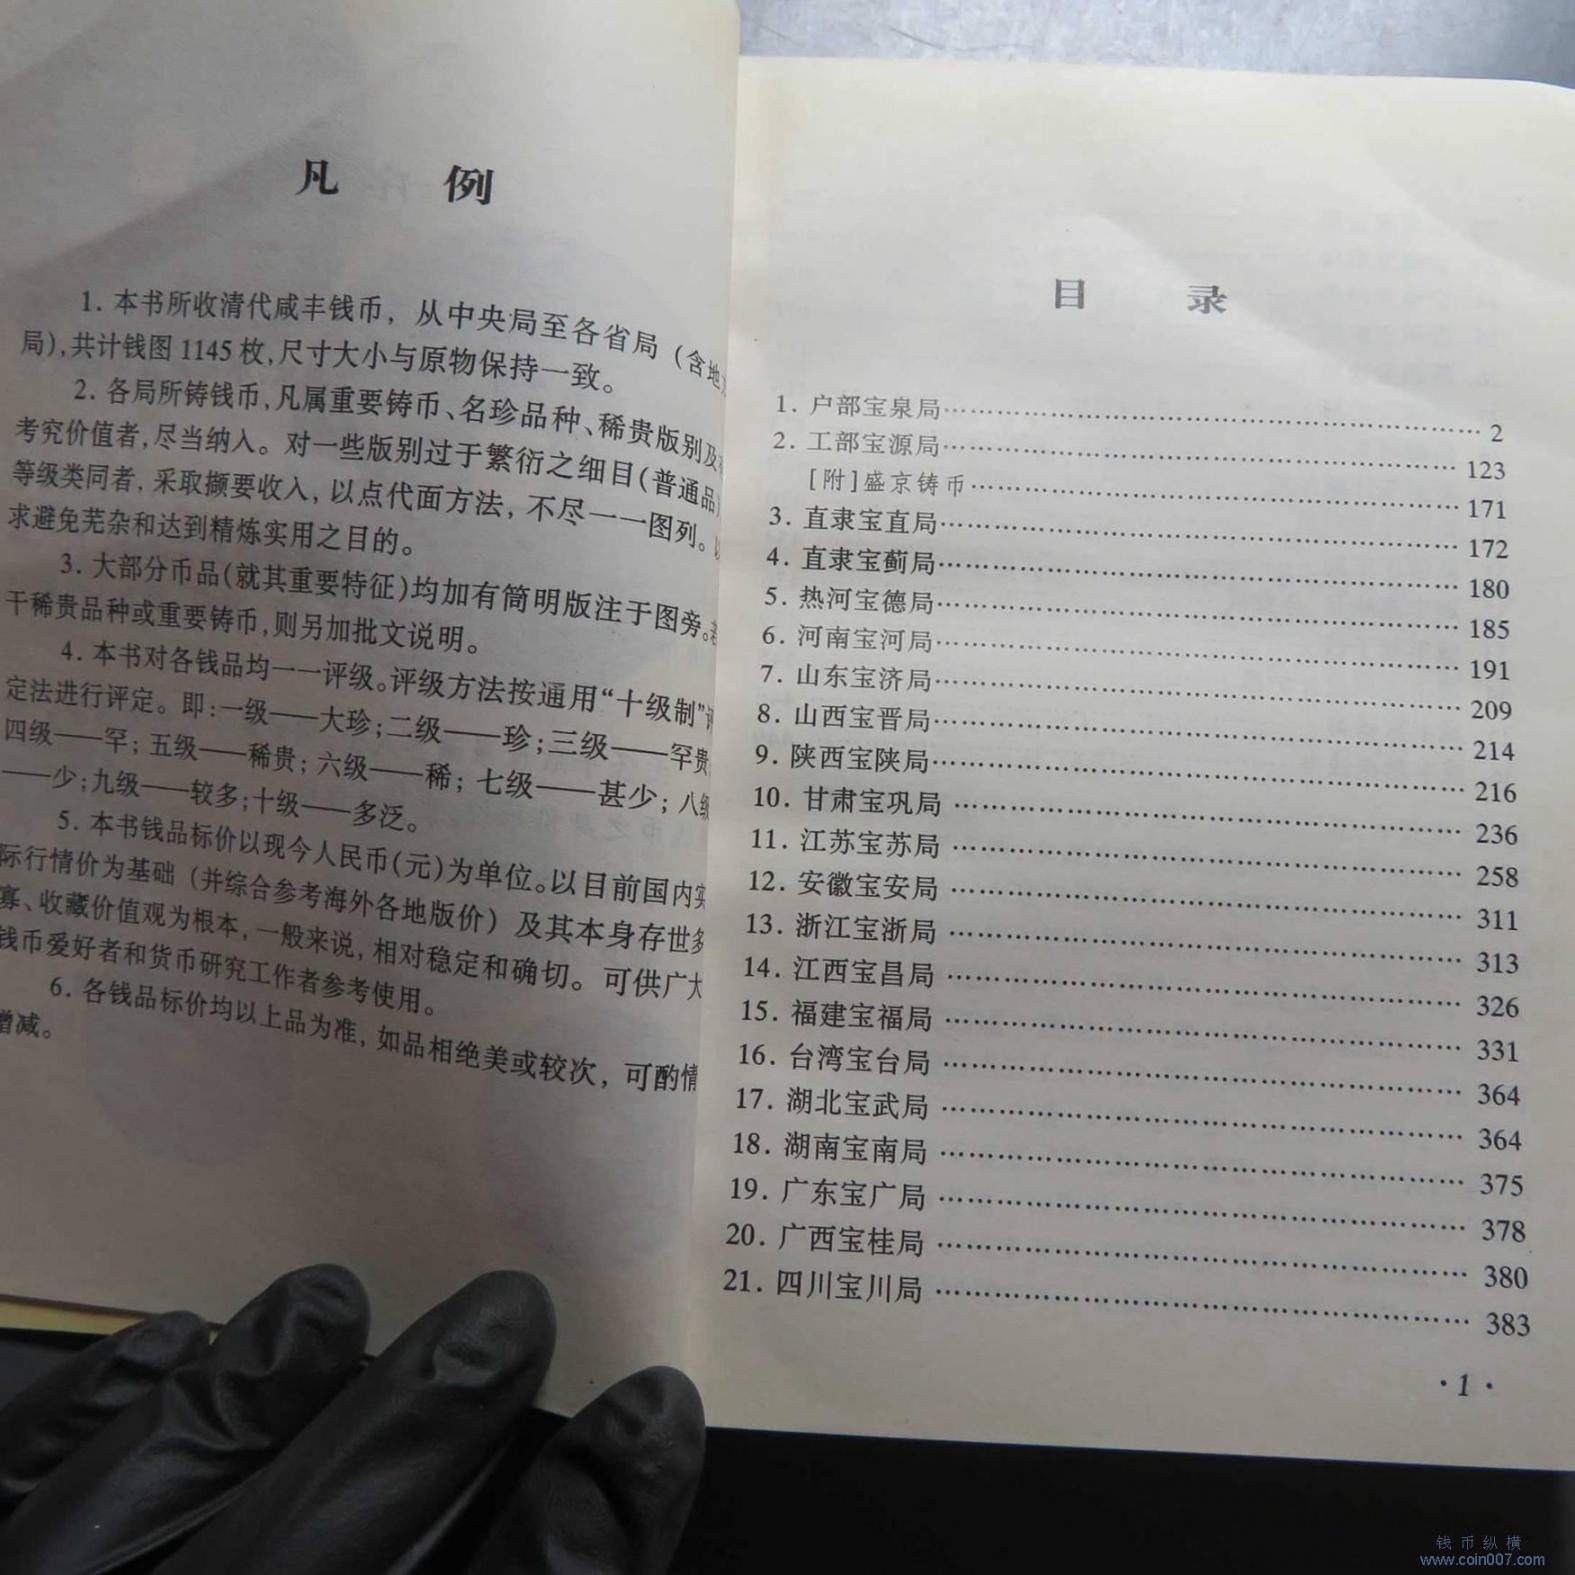 凡 例
1. 本书所收清代咸丰钱币, 从中央局至各省局 (含地
局),共计钱图1145枚,尺寸大小与原物保持一致。
2. 各局所铸钱币,凡属重要铸币、名珍品种、稀贵版别及
考究价值者,尽当纳入。对一些版别过于繁衍之细目(普通品)
等级类同者, 采取撷要收入, 以点代面方法, 不尽一一图列。
求避免芜杂和达到精炼实用之目的。
3. 大部分币品(就其重要特征)均加有简明版注于图旁。
干稀贵品种或重要铸币,则另加批文说明。
4. 本书对各钱品均一一评级。评级方法按通用“十级制”
定法进行评定。即:一级——大珍;二级——珍;三级——罕贵
四级——罕; 五级——稀贵; 六级——稀; 七级——甚少; 八级
——少;九级——较多;十级——多泛。
5. 本书钱品标价以现今人民币(元)为单位。以目前国内实
际行情价为基础 (并综合参考海外各地版价) 及其本身存世多
寡、收藏价值观为根本, 一般来说, 相对稳定和确切。可供广大
钱币爱好者和货币研究工作者参考使用。
6. 各钱品标价均以上品为准, 如品相绝美或较次, 可酌情
增减。
目 录
1. 户部宝泉局…………………………………… 2
2. 工部宝源局…………………………………… 123
[附]盛京铸币…………………………………… 171
3. 直隶宝直局…………………………………… 172
4. 直隶宝蓟局…………………………………… 180
5. 热河宝德局…………………………………… 185
6. 河南宝河局…………………………………… 191
7. 山东宝济局…………………………………… 209
8. 山西宝晋局…………………………………… 214
9. 陕西宝陕局…………………………………… 216
10. 甘肃宝巩局 …………………………………… 236
11. 江苏宝苏局 …………………………………… 258
12. 安徽宝安局 …………………………………… 311
13. 浙江宝浙局 …………………………………… 313
14. 江西宝昌局 …………………………………… 326
15. 福建宝福局 …………………………………… 331
16. 台湾宝台局 …………………………………… 364
17. 湖北宝武局 …………………………………… 364
18. 湖南宝南局 …………………………………… 375
19. 广东宝广局 …………………………………… 378
20. 广西宝桂局 …………………………………… 380
21. 四川宝川局 …………………………………… 383
·1·
钱币纵横
www.coin007.com